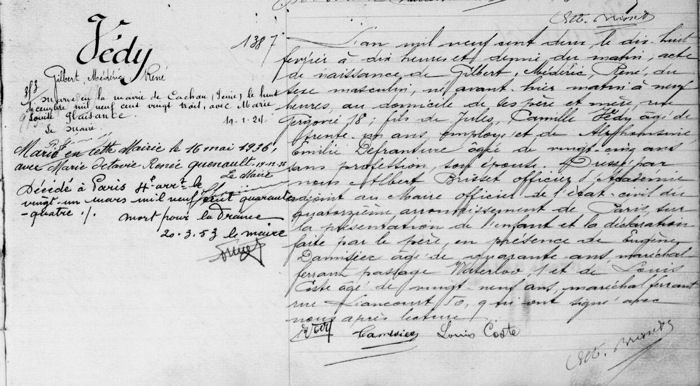 Védy
Gilbert Médéric René
Marié en la mairie de Cachan (Seine) le huit
décembre mil neuf cent vingt trois, avec Marie
Louise Plaisance
11.1.24.
Marié en cette Mairie le 16 mai 1936
avec Marie Octavie Renée Quenault
Le Maire
Décédé à Paris 4e arr. le
vingt un mars mil neuf cent quarante
quatre ./.
mort pour la France
20.3.53 le maire
1387
L'an mil neuf cent deux, le dix huit
février à dix heures et demie du matin; acte
de naissance de Gilbert, Médéric, René, du
sexe masculin, né avant-hier matin à neuf
heures, au domicile de ses père et mère, rue
18; fils de Jules, Camille Védy âgé de
trente un ans, employé et de Alphonsine
Emilie agé de vingt cinq ans
sans profession, son épouse. Dressé par
nous Albert Brisset officier d'Académie
adjoint au Maire officier de l'état-civil du
quatorzième arrondissement de Paris, sur
la présentation de l'enfant et la déclaration
faite par le père, en présence de Eugène
agé de quarante ans maréchal
ferrant passage Waterloo, 1 et de Louis
Coste agé de vingt neuf ans, maréchal ferrant
rue Liancourt 10, qui ont signé avec
nous après lecture.
Védy Louis Coste